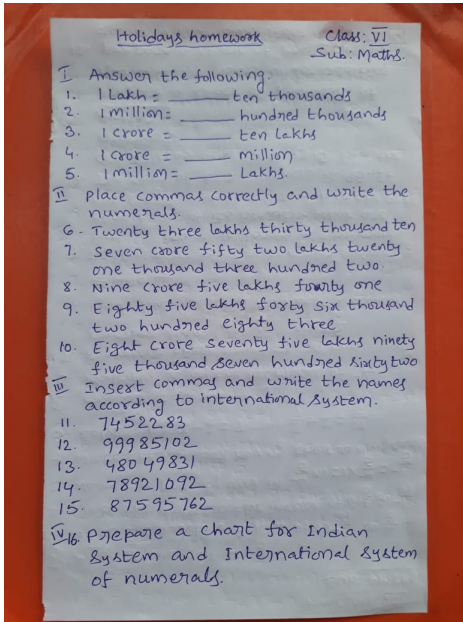 Holidays homework
Class: VI
Sub: Maths.
I Answer the following.
1. 1 Lakh = ______ ten thousands
2. 1 million = ______ hundred thousands
3. 1 crore = ______ ten Lakhs
4. 1 crore = ______ million
5. 1 million = ______ Lakhs.
II Place commas correctly and write the
numerals.
6. Twenty three lakhs thirty thousand ten
7. Seven crore fifty two lakhs twenty
one thousand three hundred two.
8. Nine crore five lakhs fourty one
9. Eighty five lakhs forty six thousand
two hundred eighty three
10. Eight crore seventy five lakhs ninety
five thousand seven hundred sixty two
III Insert commas and write the names
according to international system.
11. 7452283
12. 99985102
13. 48049831
14. 78921092
15. 87595762
IV 16. Prepare a chart for Indian
System and International system
of numerals.